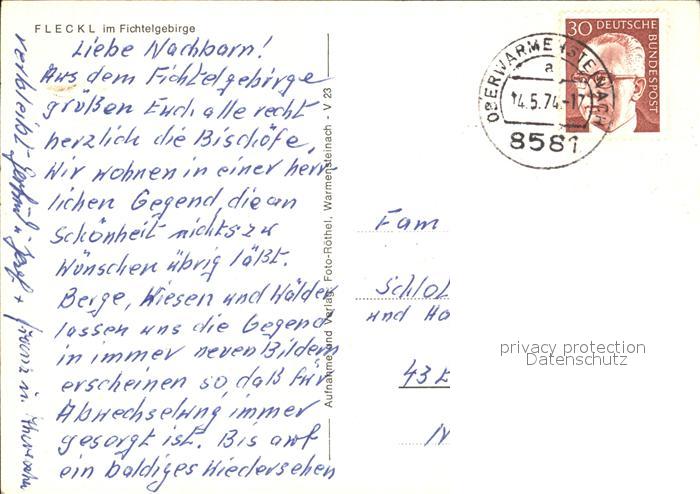 FLECKL im Fichtelgebirge
Liebe Nachbarn!
Aus dem Fichtelgebirge
grüßen Euch alle recht
herzlich die Bischöfe,
Wir wohnen in einer herr-
lichen Gegend, die an
Schönheit nichts zu
wünschen übrig läßt.
Berge, Wiesen und Wälder
lassen uns die Gegend
in immer neuen Bildern
erscheinen so, daß für
Abwechselung immer
gesorgt ist. Bis auf
ein baldiges Wiedersehen
verbleibt
Aufnahme und Verlag: Foto-Röthel, Warmensteinach - V 23
OBERWARMENSTEINACH
a
14.5.74.-17
8581
30 DEUTSCHE
BUNDESPOST
Fam
Schloß
und Ha
43 E
privacy protection
Datenschutz